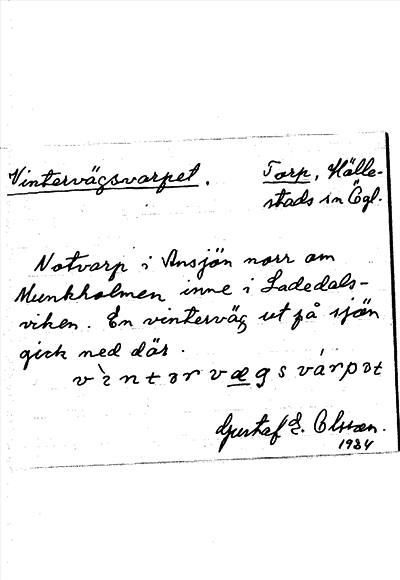 Vintervägsvarpet. Torp, Hälle-
stads sn Ögl.
Notvarp i Ansjön norr om
Munkholmen inne i Ladedals-
viken. En vinterväg ut på sjön
gick ned där.
v i̇̀ n t ə r v æ g s v á r p ə t
Gustaf E. Olsson.
1934